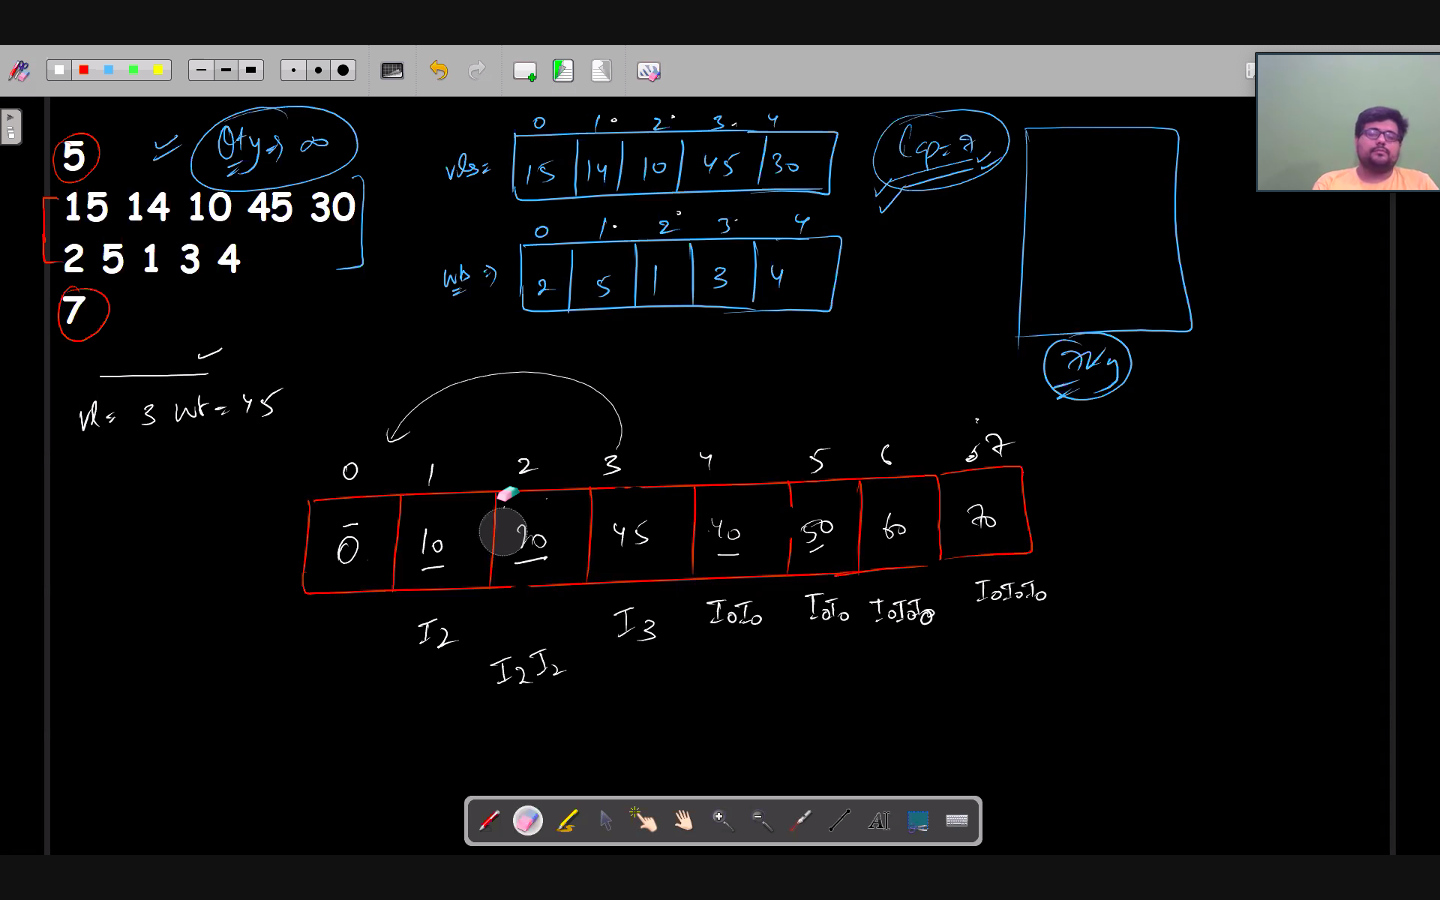 5
Qty => ∞
15 14 10 45 30
2 5 1 3 4
7
0 1 2 3 4
vls = 15 14 10 45 30
Cap = 7
0 1 2 3 4
wts => 2 5 1 3 4
7Kg
vl = 3 wt = 45
0 1 2 3 4 5 6 7
0 10 20 45 40 50 60 70
I2 I2I2 I3 I0I0 I0I0 I0I0I0 I0I0I0
AI